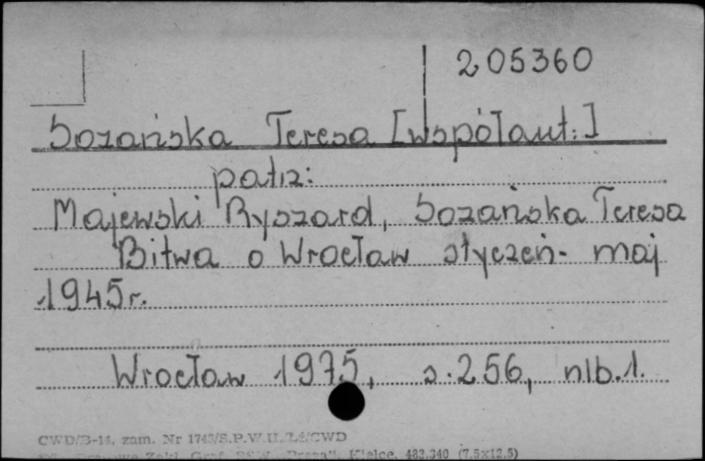 205360
Sozańska Teresa [współaut.:]
patrz:
Majewski Ryszard, Sozańska Teresa
Bitwa o Wrocław styczeń - maj
1945r.
Wrocław 1975, s. 256, nlb. 1.
CWD/B-14, zam. Nr 1743/S.P.W.U./L4/CWD
Zakł. Graf. "Prasa", Kielce, 482.340 (7,5x12,5)